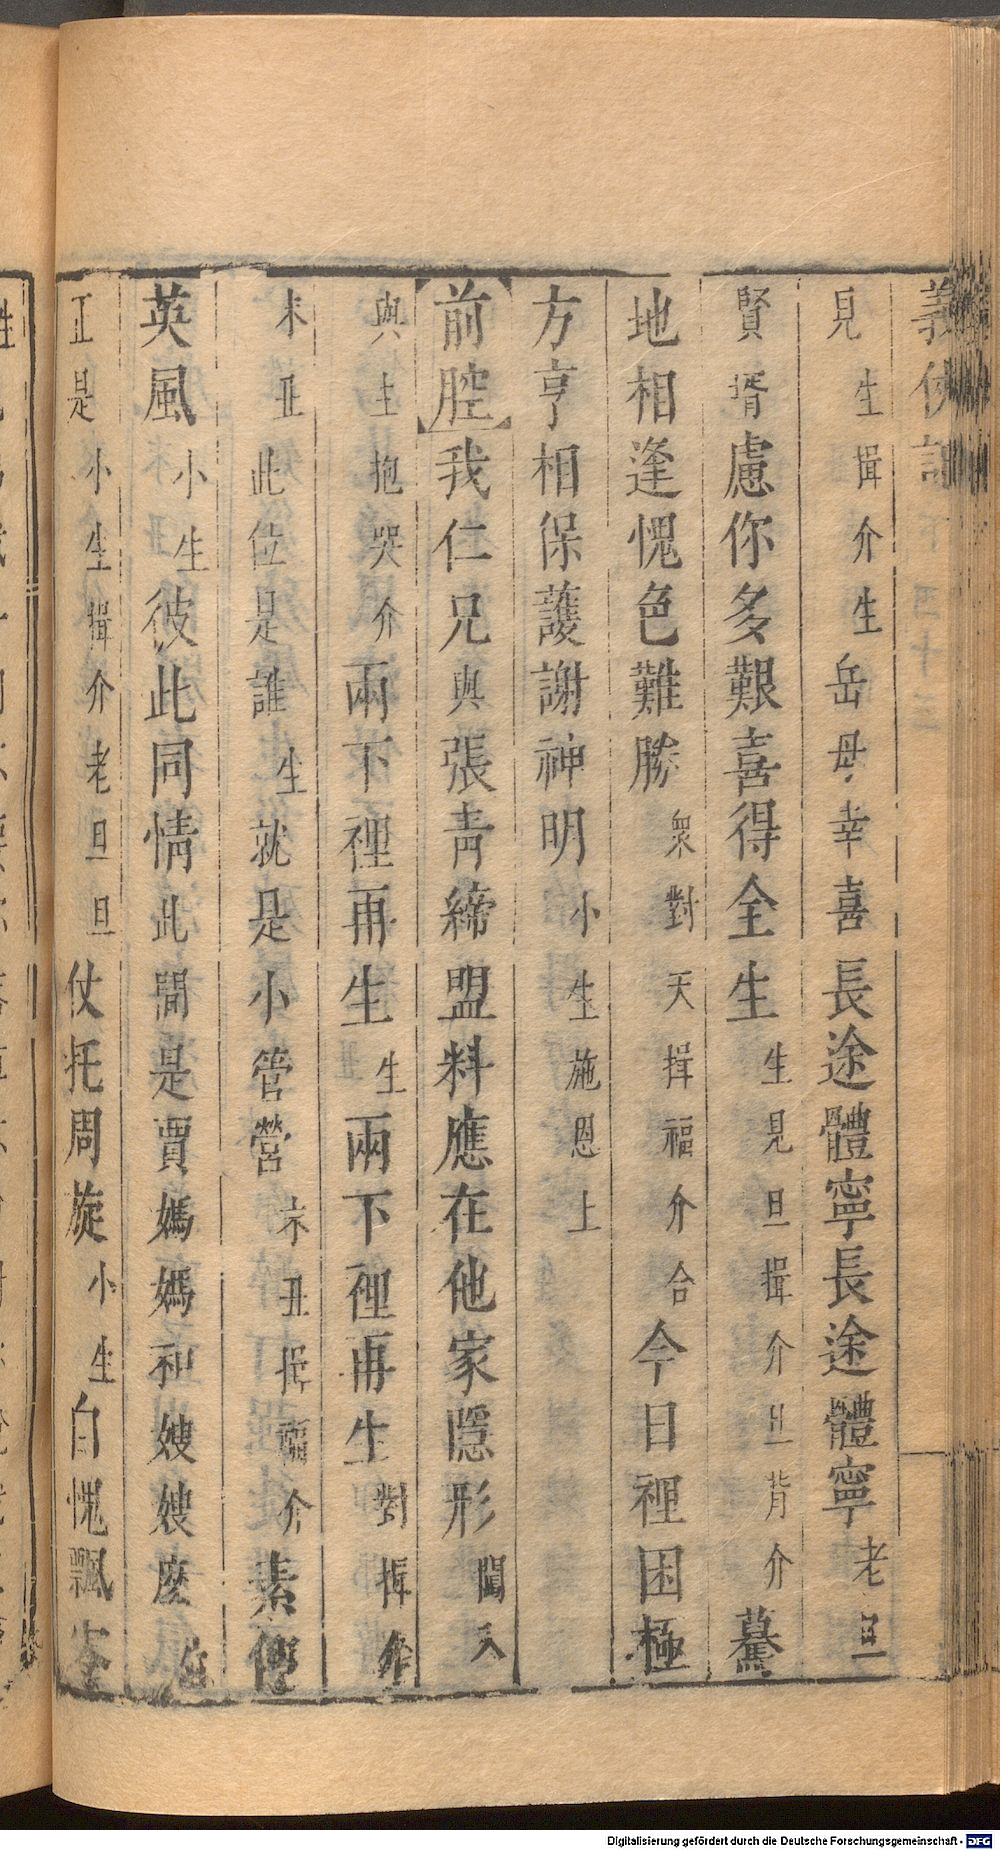 義俠記 下 四十三
見生揖介生岳母幸喜長途體寧長途體寧老旦
賢壻慮你多艱喜得全生生見旦揖介旦背介驀
地相逢愧色難勝衆對天揖福介合今日裡困極
方亨相保護謝神明小生施恩上
前腔我仁兄與張青締盟料應在他家隱形闖入
與生抱哭介兩下裡再生生兩下裡再生對揖介
末丑此位是誰生就是小管營末丑揖福介素傳
英風小生彼此同情此間是賈媽媽和嫂嫂麼
正是小生揖介老旦旦仗托周旋小生自愧飄
Digitalisierung gefördert durch die Deutsche Forschungsgemeinschaft - DFG